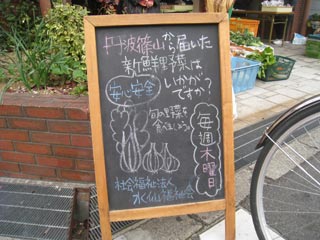 丹波篠山から届いた
新鮮野菜は
いかが?
ですか?
安心安全
旬の野菜を
食べましょう
毎週木曜日
社会福祉法人
水仙福祉会